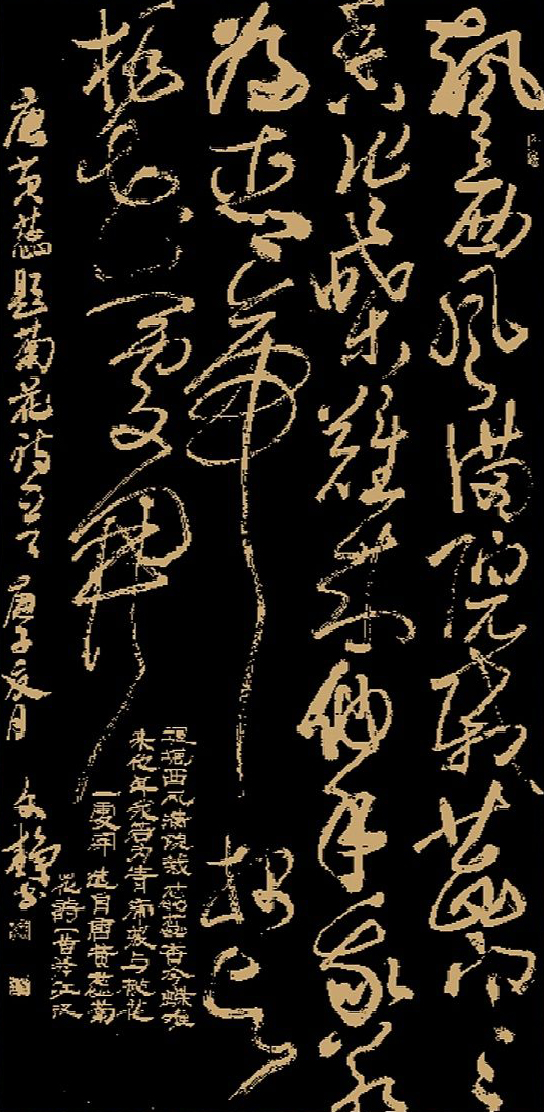 飒々西风满院栽蕊寒
香冷蝶難来他年我若
为青帝报与
桃花一處開
唐黄题菊花诗一首 庚子夏月 文静书
飒飒西风满院栽蕊寒香冷蝶难
来他年我若为青帝报与桃花
一處開 选自唐黄菊
花詩一首江汉